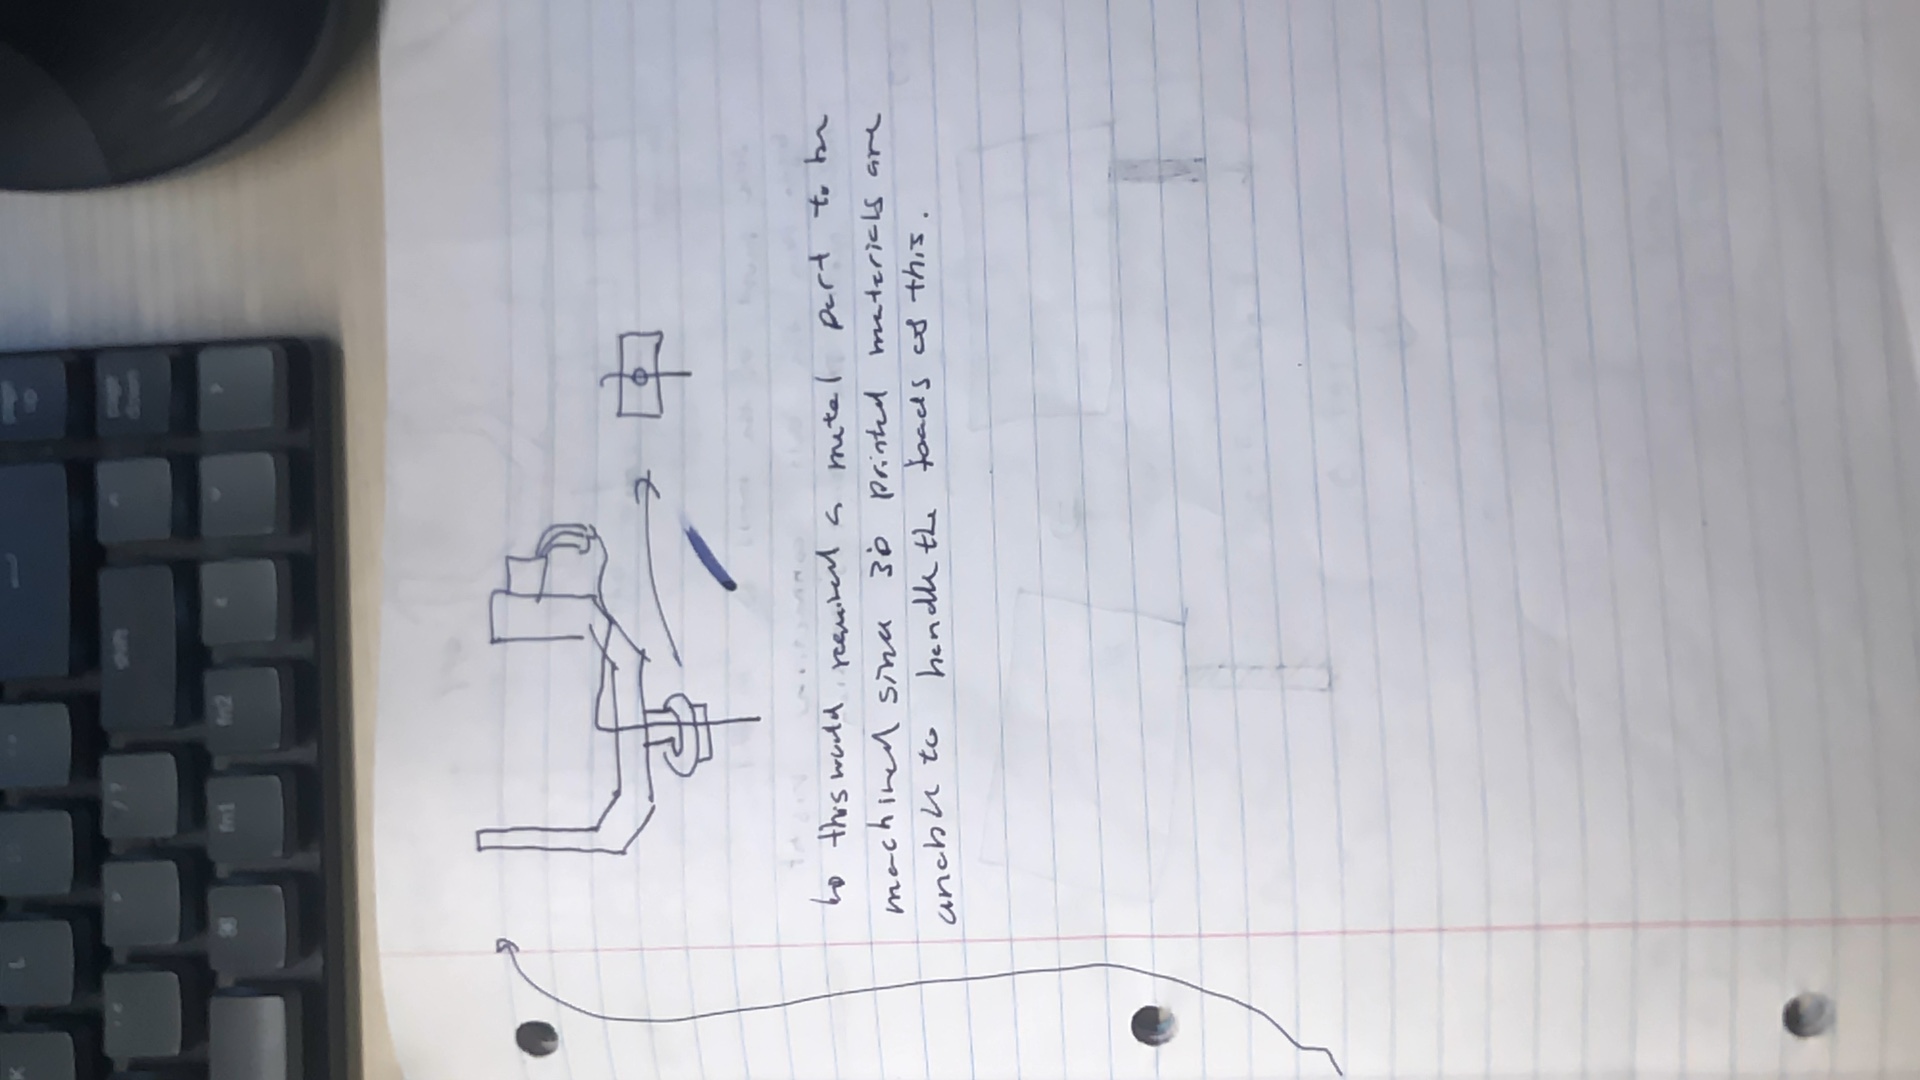 K L
page up
shift
page down
⌘ fn1 fn2
this would required a metal part to be
machined since 3D printed materials are
unable to handle the loads of this.